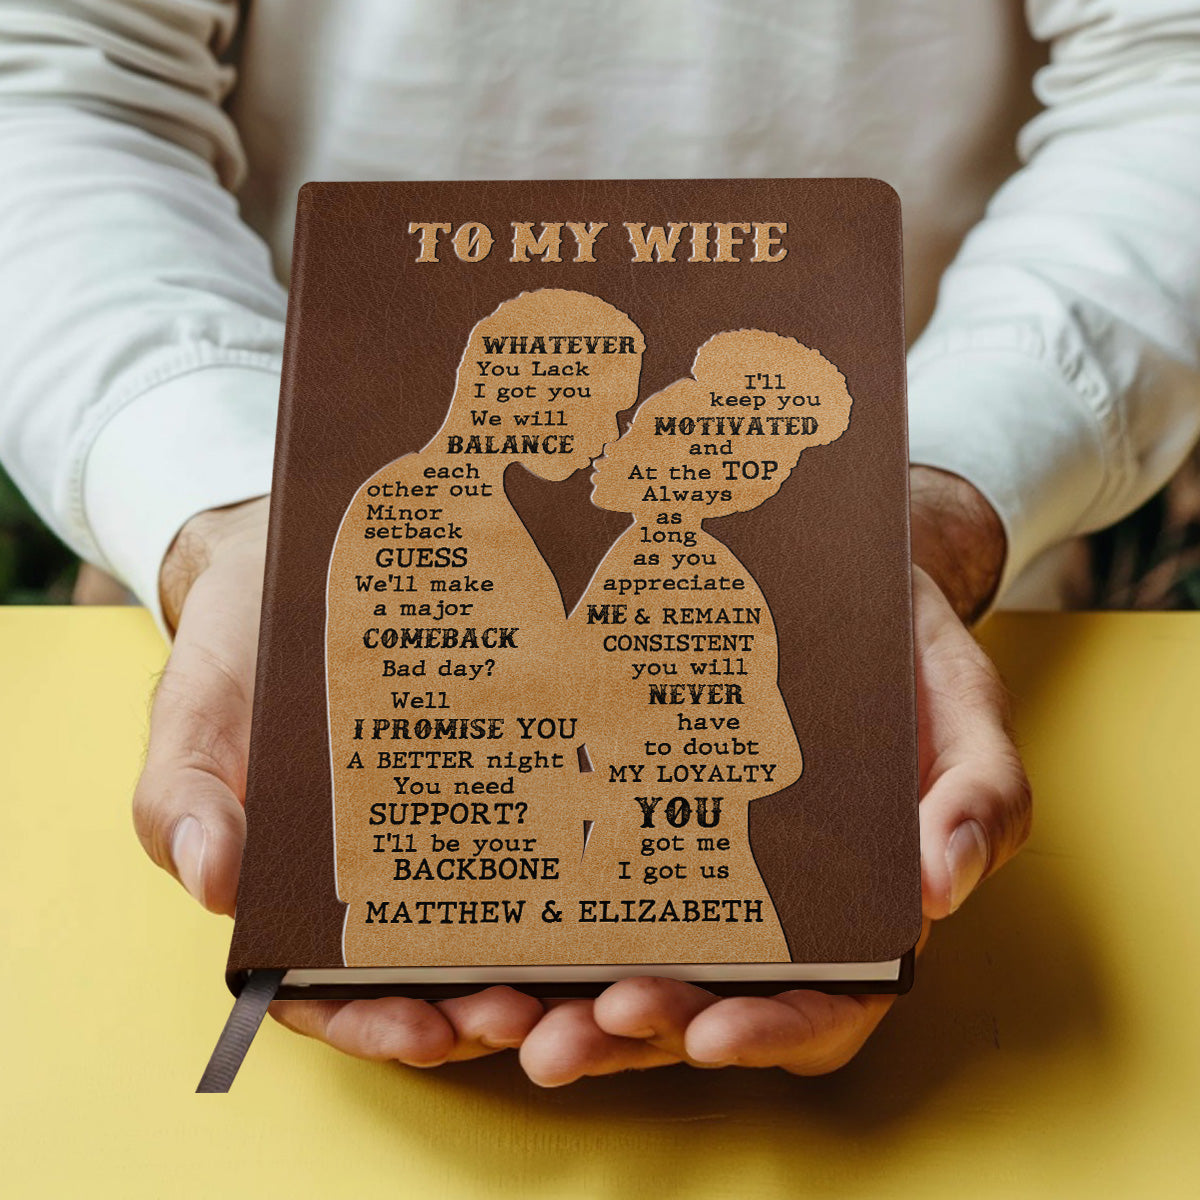 TO MY WIFE
WHATEVER
You Lack
I got you
We will
BALANCE
each
other out
Minor
setback
GUESS
We'll make
a major
COMEBACK
Bad day?
Well
I PROMISE YOU
A BETTER night
You need
SUPPORT?
I'll be your
BACKBONE
I'll
keep you
MOTIVATED
and
At the TOP
Always
as
long
as you
appreciate
ME & REMAIN
CONSISTENT
you will
NEVER
have
to doubt
MY LOYALTY
YOU
got me
I got us
MATTHEW & ELIZABETH